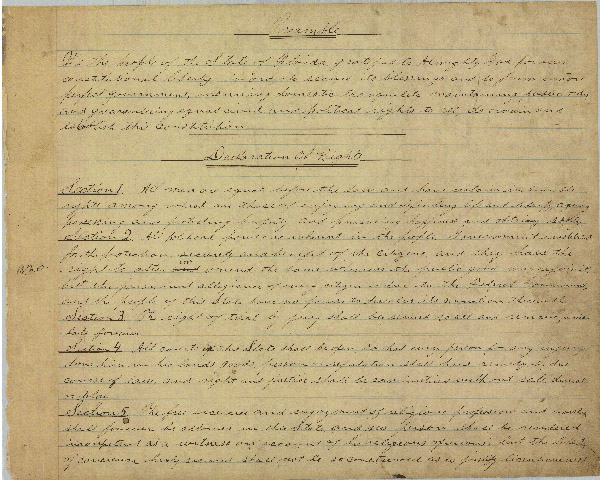 Preamble
We the people of the State of Florida grateful to Almighty God for our
constitutional liberty in order to secure its blessings and to form a more
perfect government, insuring domestic tranquility maintaining public order
and guaranteeing equal civil and political rights to all, do ordain and
establish this Constitution
Declaration of Rights
Section 1. All men are equal before the law and have inalienable
rights among which are those of enjoying and defending life and liberty, acquiring
possessing and protecting property and pursuing happiness and obtaining safety
Section 2. All political power is inherent in the people. Government is instituted
for the protection, security and benefit of the citizens, and they have the
right to alter or amend the same whenever the public good may require it
but the paramount allegiance of every citizen is due to the Federal Government
and the people of this State have no power to dissolve its connection therewith
Section 3. The right of trial by jury shall be secured to all and remain
forever
Section 4. All courts in this State shall be open, so that every person for any injury
done him in his lands, goods, person or reputation shall have remedy, by due
course of law, and right and justice shall be administered without sale, denial
or delay
Section 5. The free exercise and enjoyment of religious profession and worship
shall forever be allowed in this State and no person shall be rendered
incompetent as a witness on account of his religious opinions; but the liberty
of conscience hereby secured shall not be so construed as to justify licentiousness